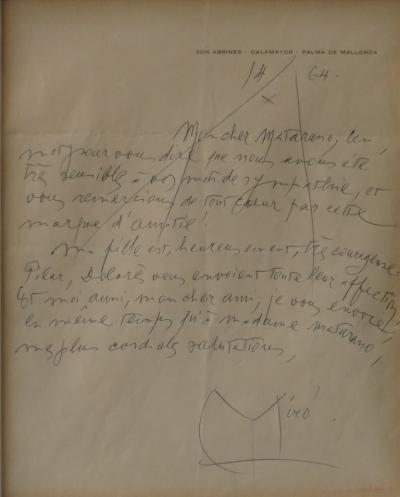 SON ABRINES - CALAMAYOR - PALMA DE MALLORCA
14 X 64.
Mon cher Matarasso, un
mot pour vous dire que nous avons été
très sensibles à vos mots de sympathie, et
vous remercions de tout coeur par cette
marque d'amitié!
Ma fille est, heureusement, très courageuse.
Pilar, Dolorès vous envoient toute leur affection!
Et moi aussi, mon cher ami, je vous envoie,
en même temps qu'à madame Matarasso,
mes plus cordiales salutations,
Miró.